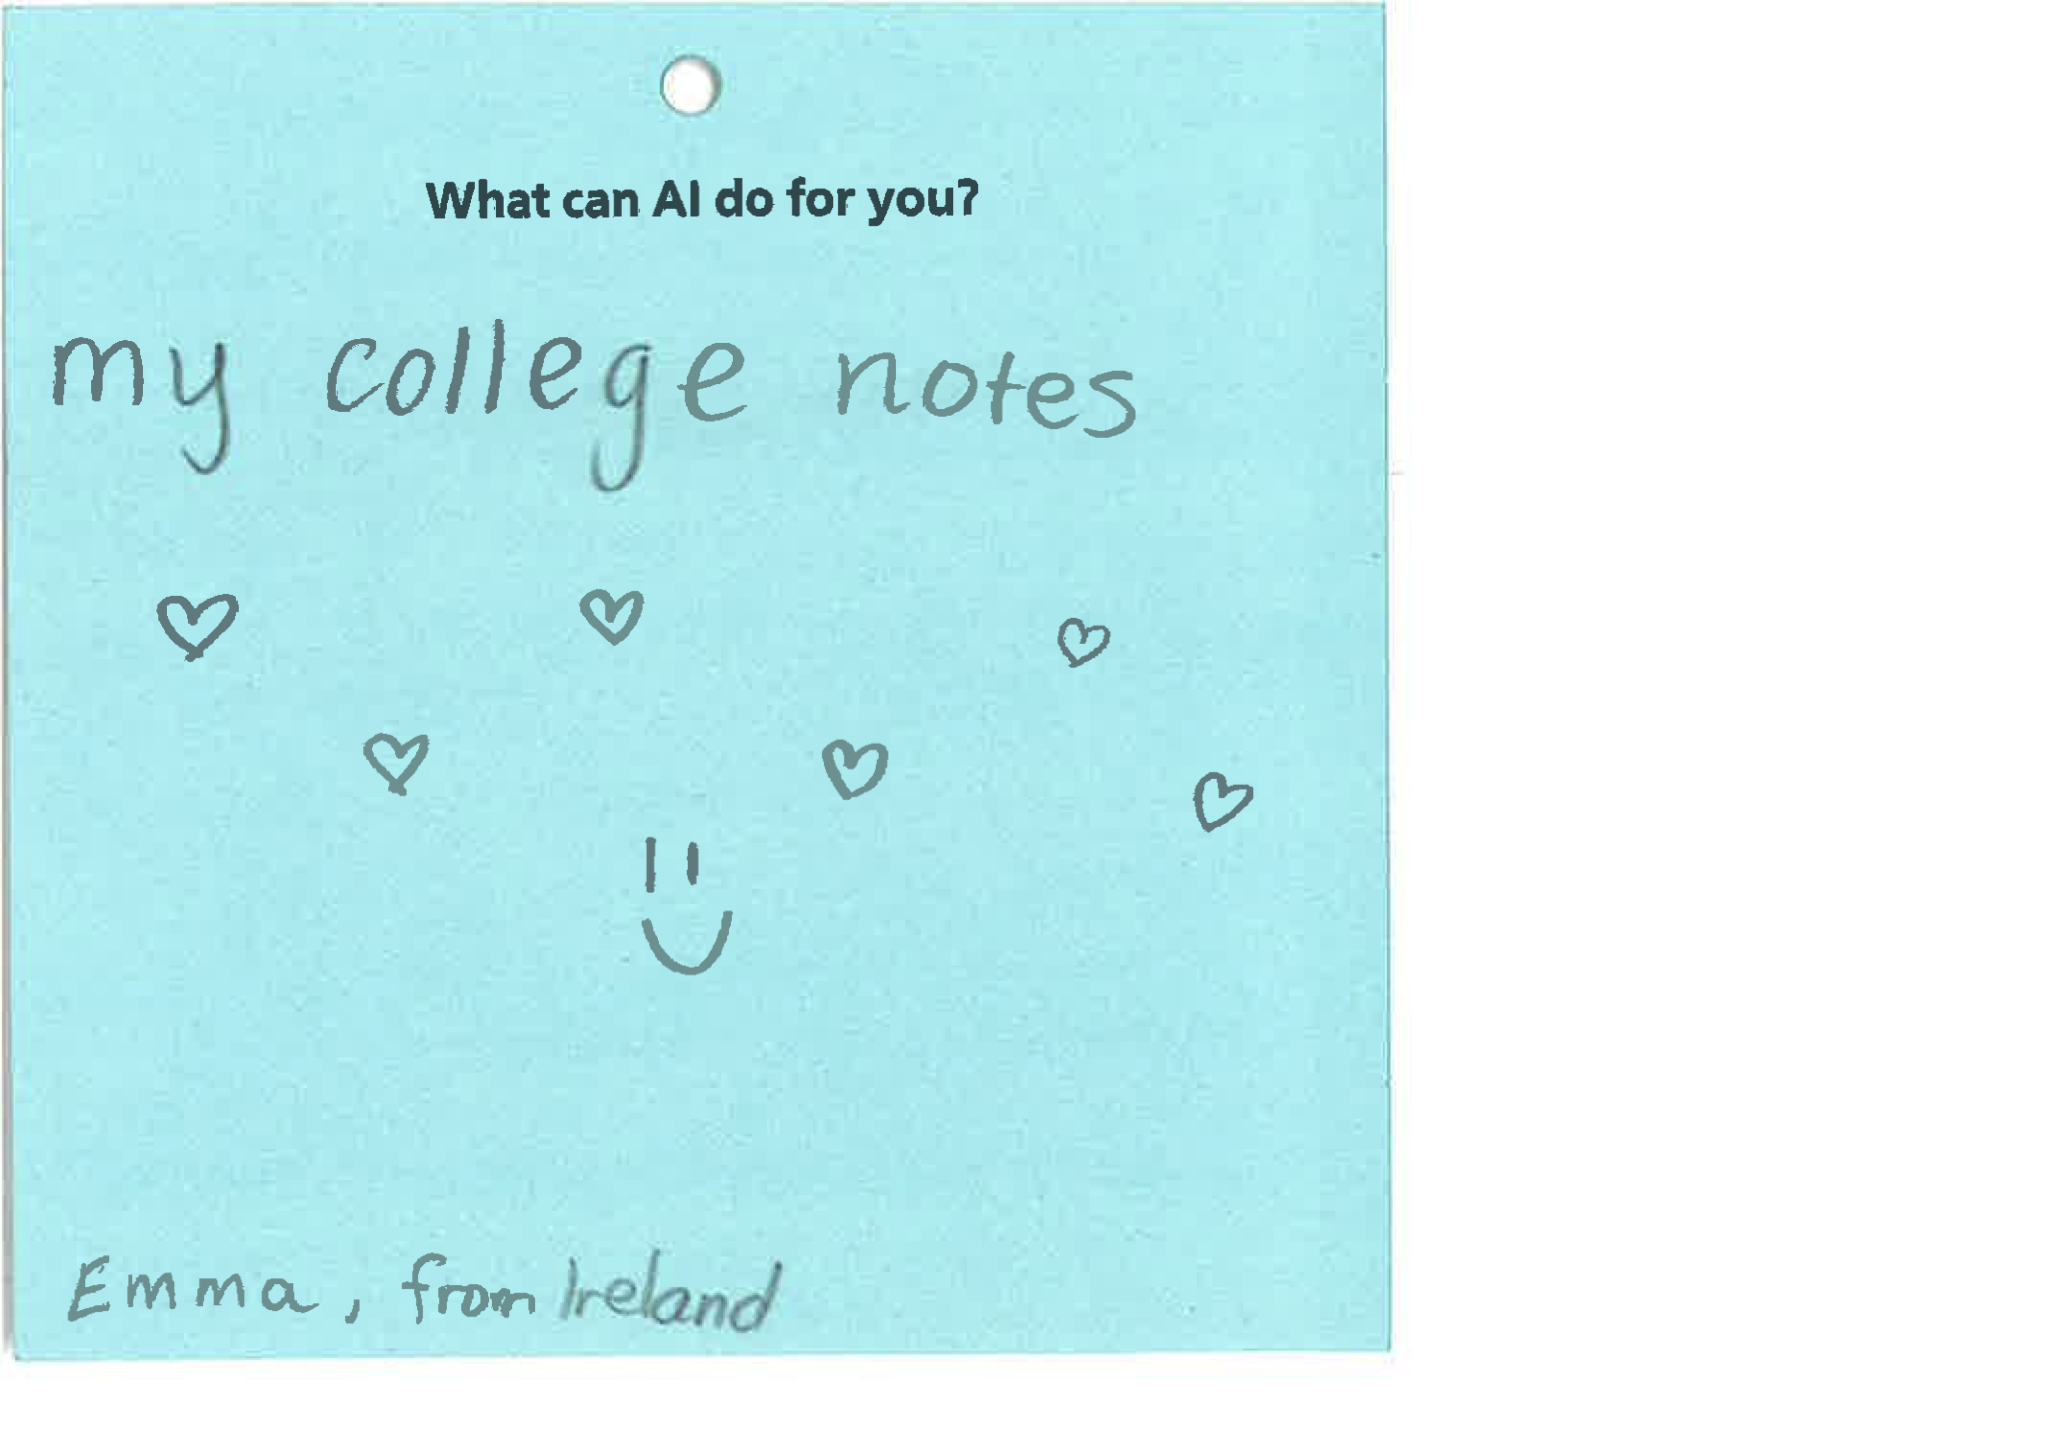 What can AI do for you?
my college notes
Emma, from Ireland